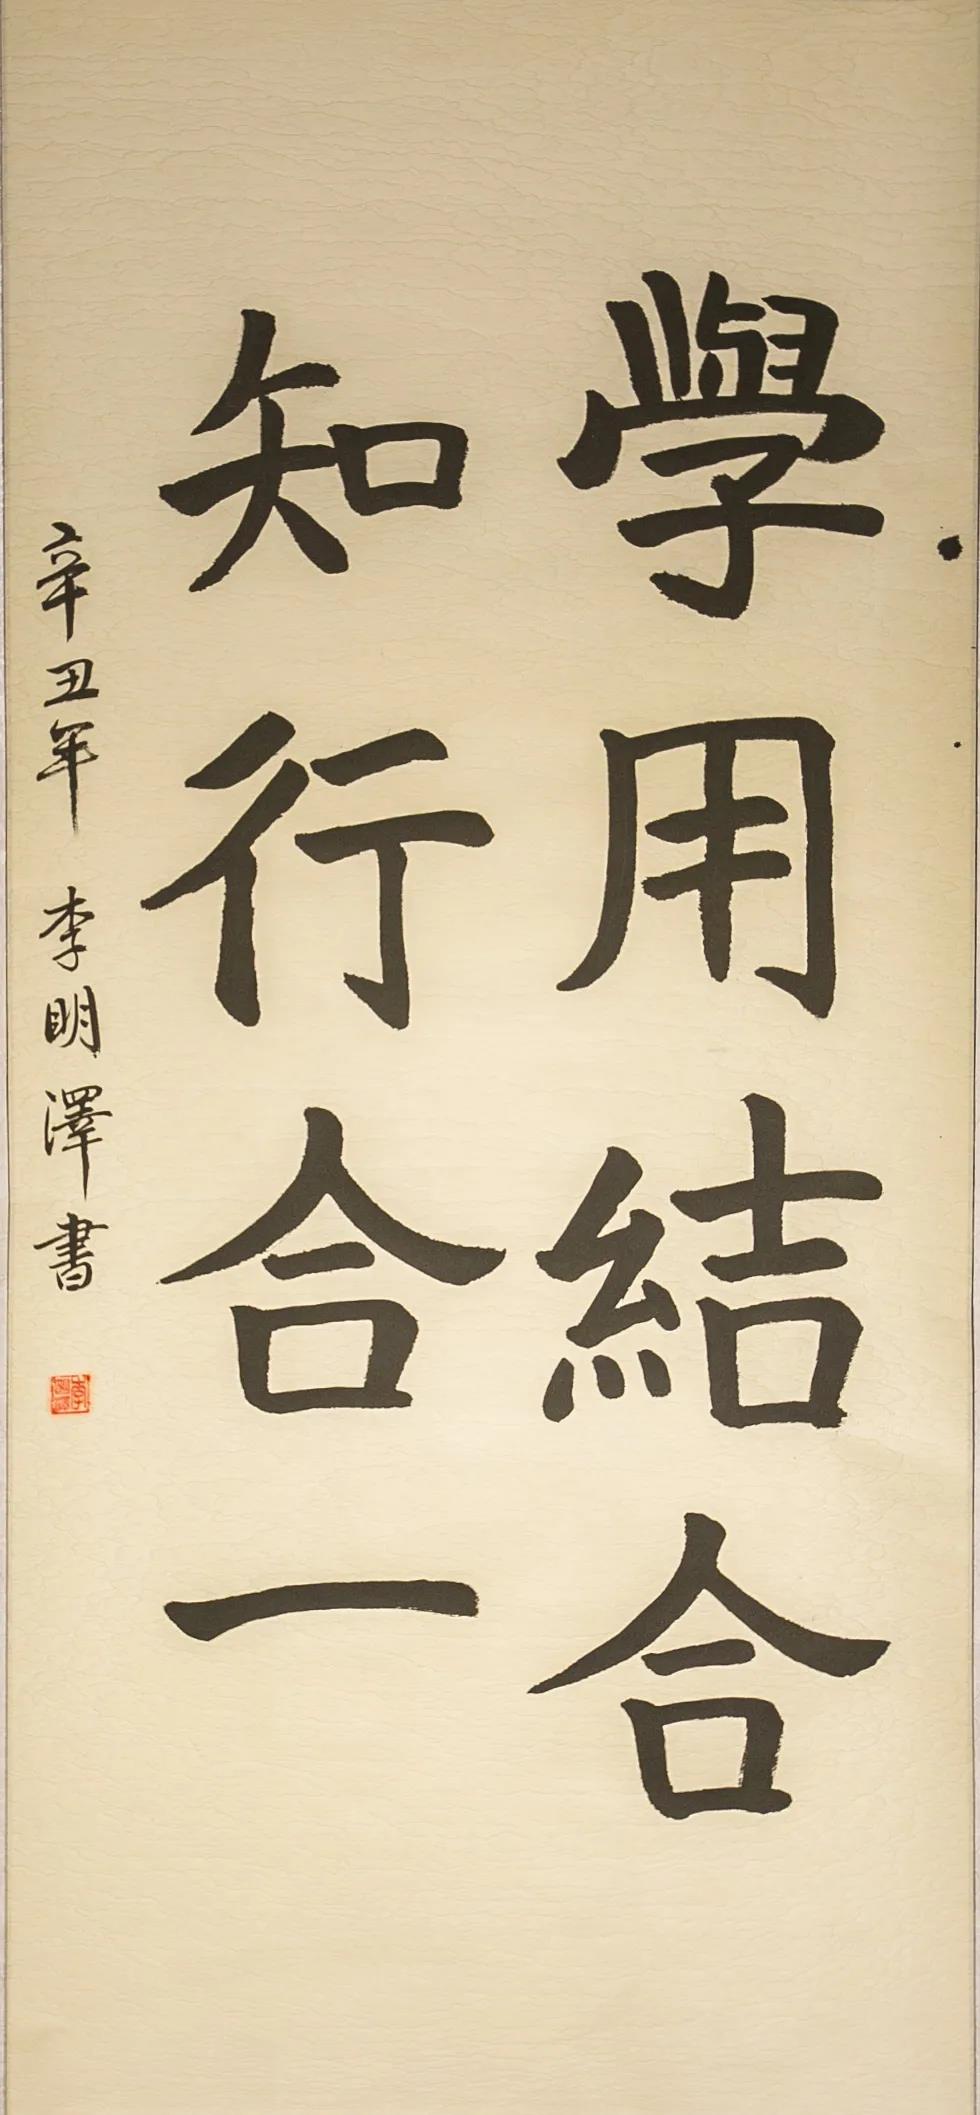 學用結合
知行合一
辛丑年 李明澤書